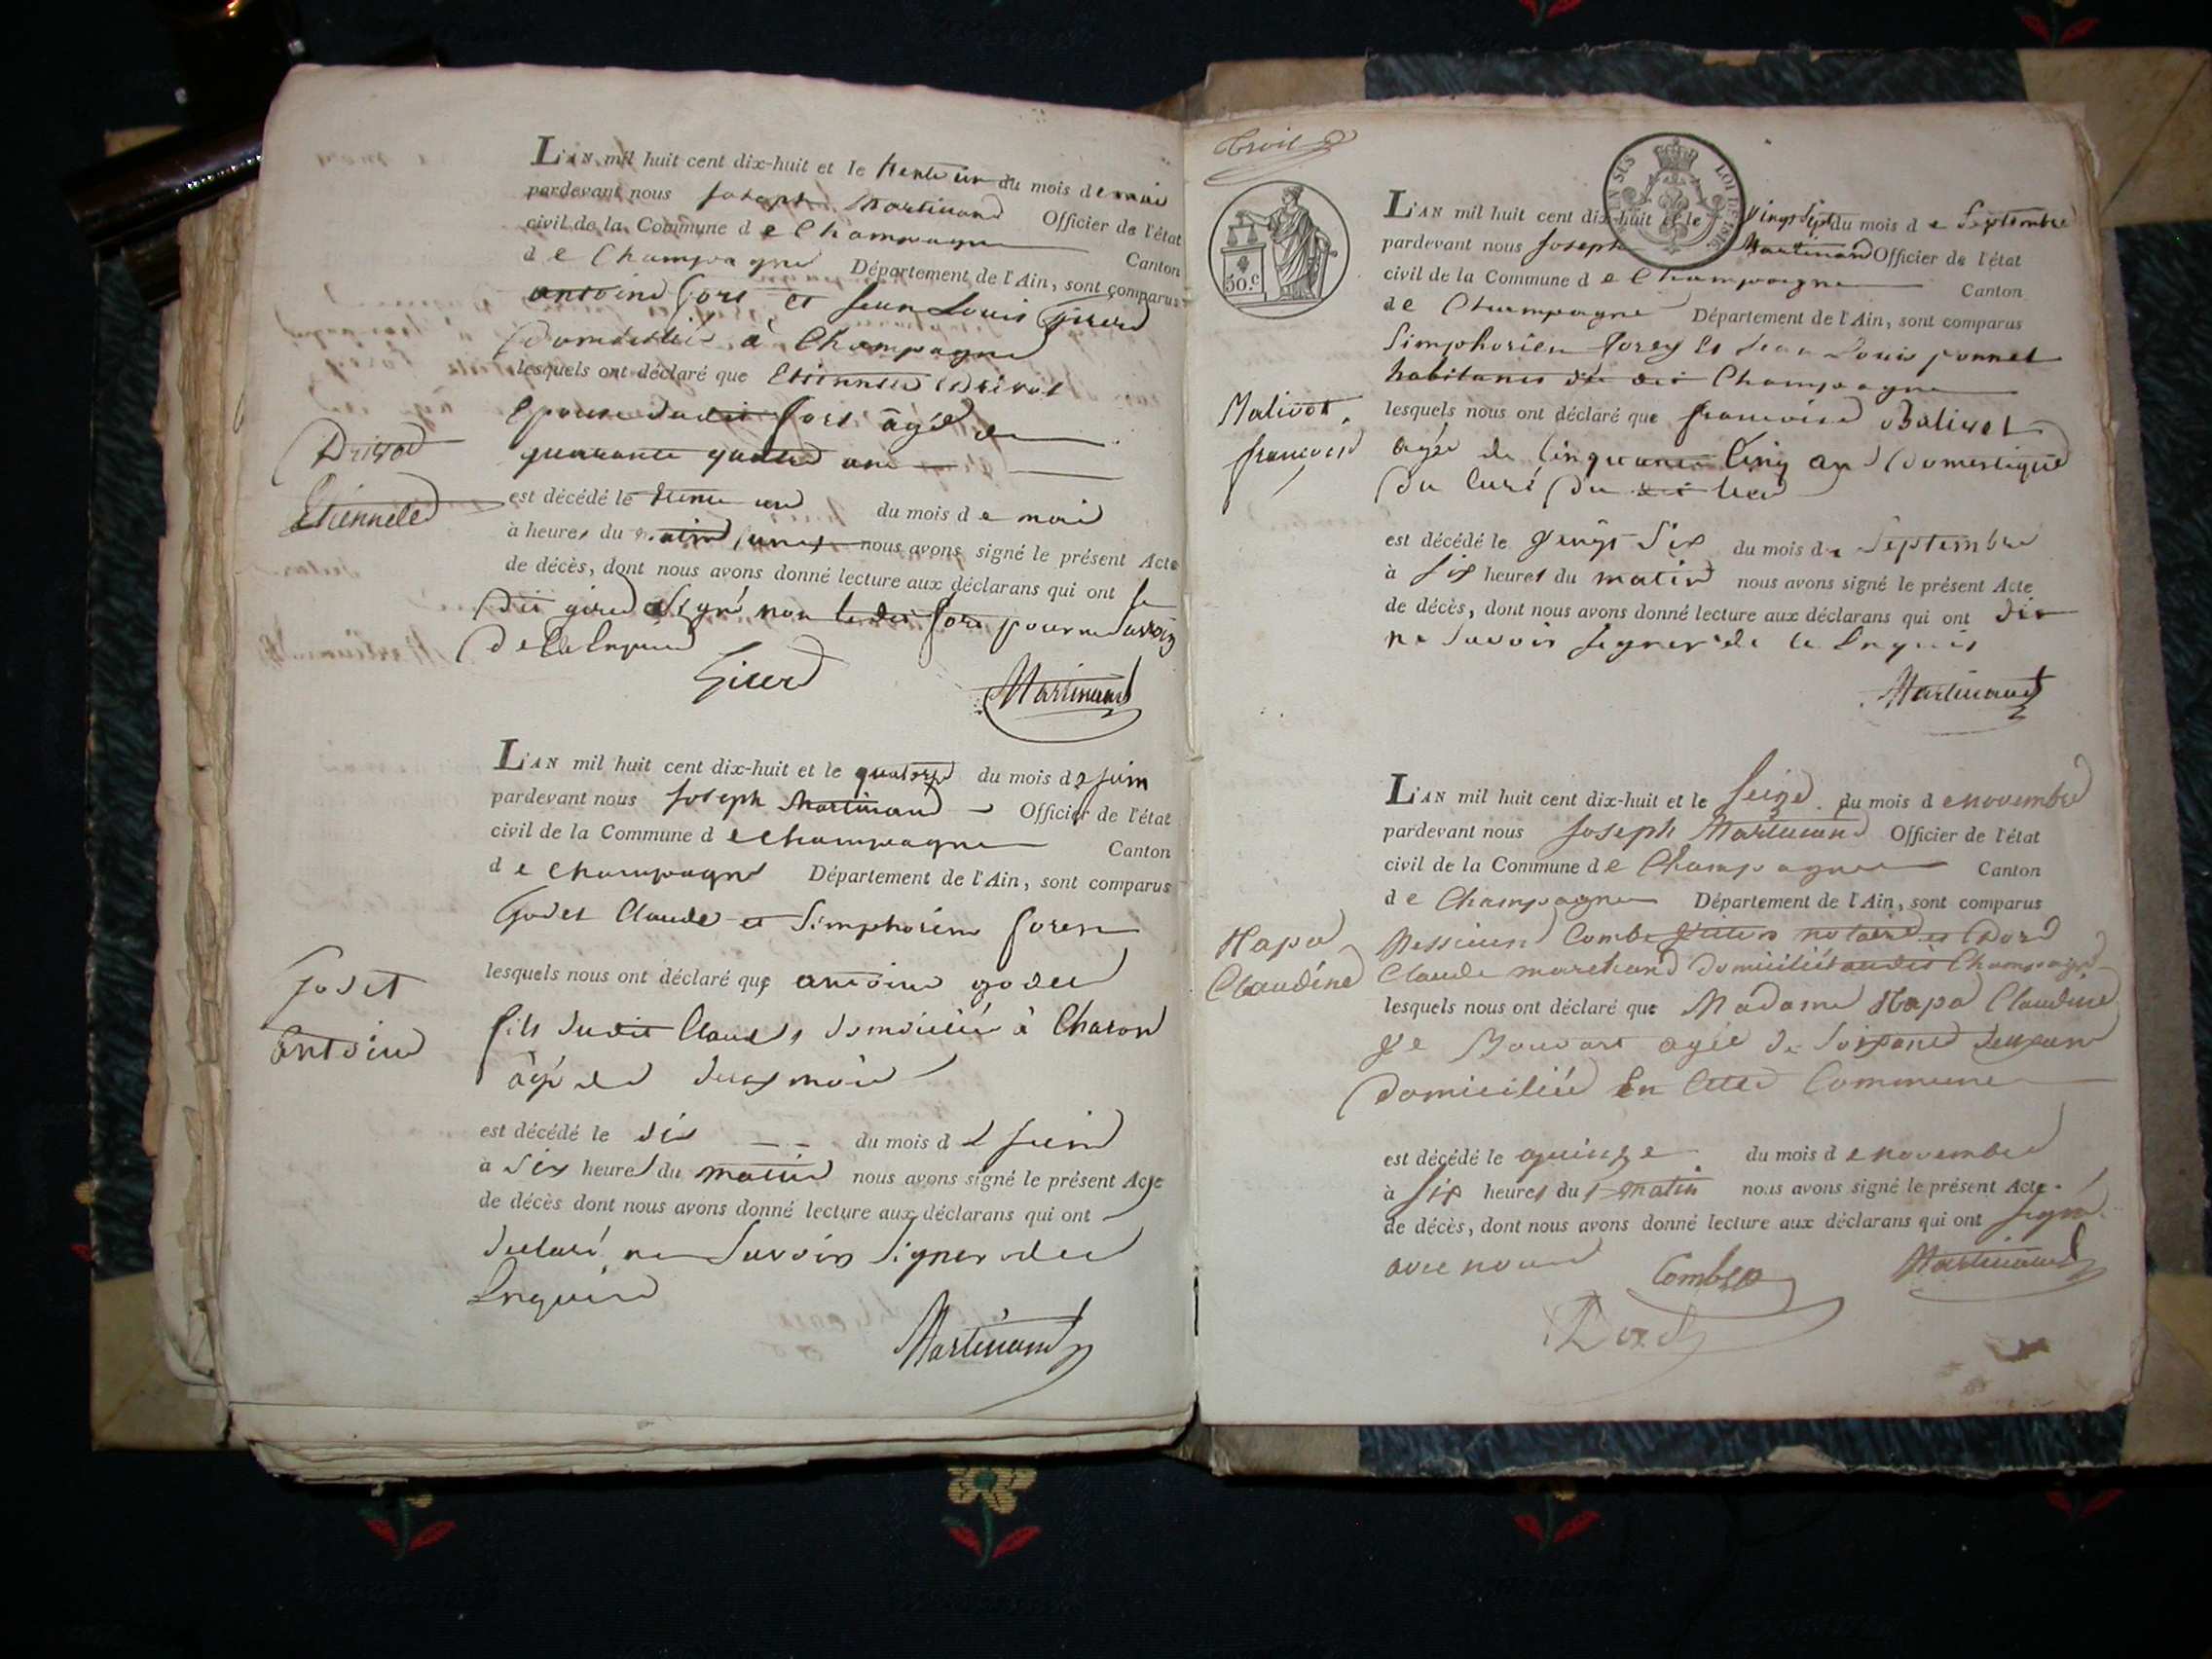 L'AN mil huit cent dix-huit et le trente un du mois de mai
pardevant nous Joseph Martinand Officier de l'état
civil de la Commune de Champagne Canton
de Champagne Département de l'Ain, sont comparus
antoine fore et Jean Louis Girerd
Domiciliés à Champagne
lesquels ont déclaré que Etiennette Drivat
Epouse dudit fore âgée de
quarante quatre ans
Etiennette
est décédé le trente un du mois de mai
à heures du matin nous avons signé le présent Acte
de décès, dont nous avons donné lecture aux déclarans qui ont le
dit girerd signé non le dit fore pour ne savoir
de ce Enquis
Girerd Martinand
L'AN mil huit cent dix-huit et le quatorze du mois de juin
pardevant nous Joseph Martinand Officier de l'état
civil de la Commune de champagne Canton
de champagne Département de l'Ain, sont comparus
Godet Claude et Simphorien
lesquels nous ont déclaré que antoine godet
Godet
antoine
fils dudit Claude, domicilié à Charon
âgé de deux mois
est décédé le dix du mois de juin
à Six heures du matin nous avons signé le présent Acte
de décès dont nous avons donné lecture aux déclarans qui ont
declaré ne Savoir Signer de ce
Enquis
Martinand
Troil
EN SUS LOI DE 1816
50.c
L'AN mil huit cent dix-huit et le vingt Sept du mois de Septembre
pardevant nous Joseph Martinand Officier de l'état
civil de la Commune de Champagne Canton
de Champagne Département de l'Ain, sont comparus
Simphorien forey Et Jean Louis ponnet
habitants du dit Champagne
Malivot
francoise
lesquels nous ont déclaré que francoise
agée de Cinquante Cinq ans Domestique
du Curé du dit lieu
est décédé le vingt Six du mois de Septembre
à Six heures du matin nous avons signé le présent Acte
de décès, dont nous avons donné lecture aux déclarans qui ont dit
ne Savoir signer de ce Enquis
Martinand
L'AN mil huit cent dix-huit et le Seize du mois de novembre
pardevant nous Joseph Martinand Officier de l'état
civil de la Commune de Champagne Canton
de Champagne Département de l'Ain, sont comparus
Messieurs Combe notaire et Dord
Claudine
Claude marchand domiciliés audit Champagne
lesquels nous ont déclaré que Madame Claudine
agée de Soixante deux ans
Domiciliée En Cette Commune
est décédé le quinze du mois de novembre
à Six heures du matin nous avons signé le présent Acte
de décès, dont nous avons donné lecture aux déclarans qui ont signé
avec nous Combe Martinand
Dord